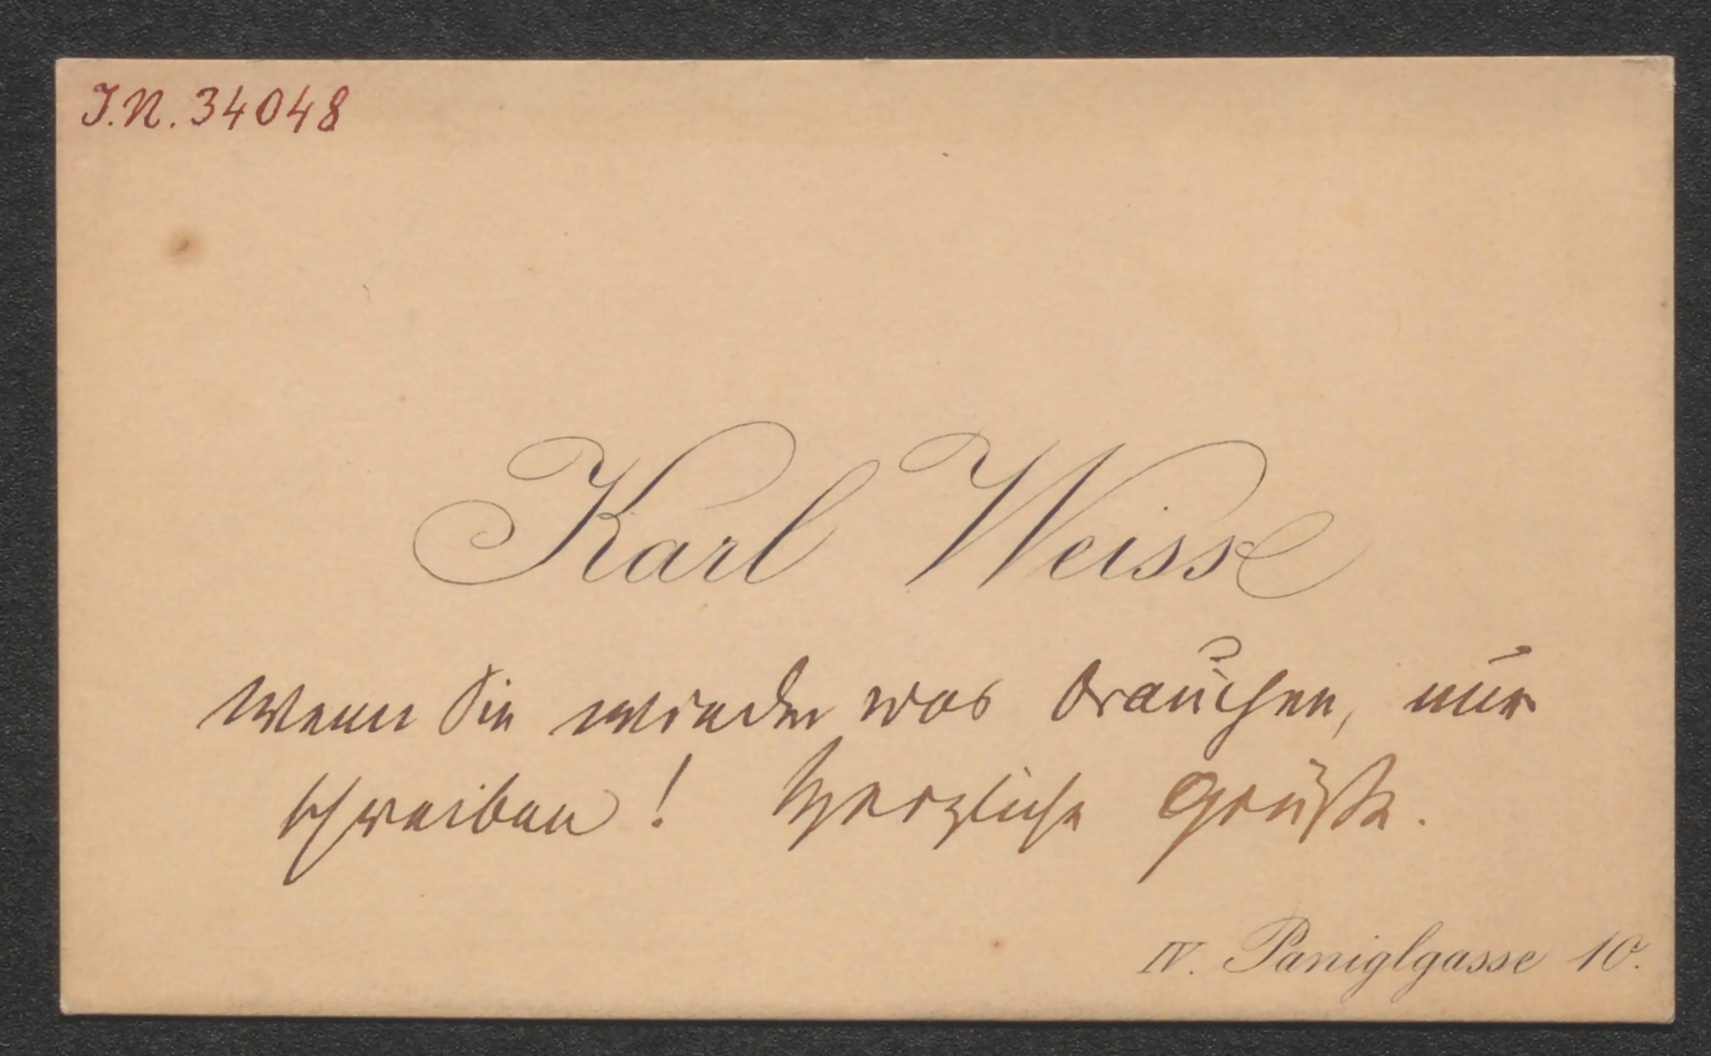 I.N. 34048
Karl Weiss
Wenn Sie wieder was brauchen, nur
schreiben! Herzliche Grüße.
IV. Paniglgasse 10.